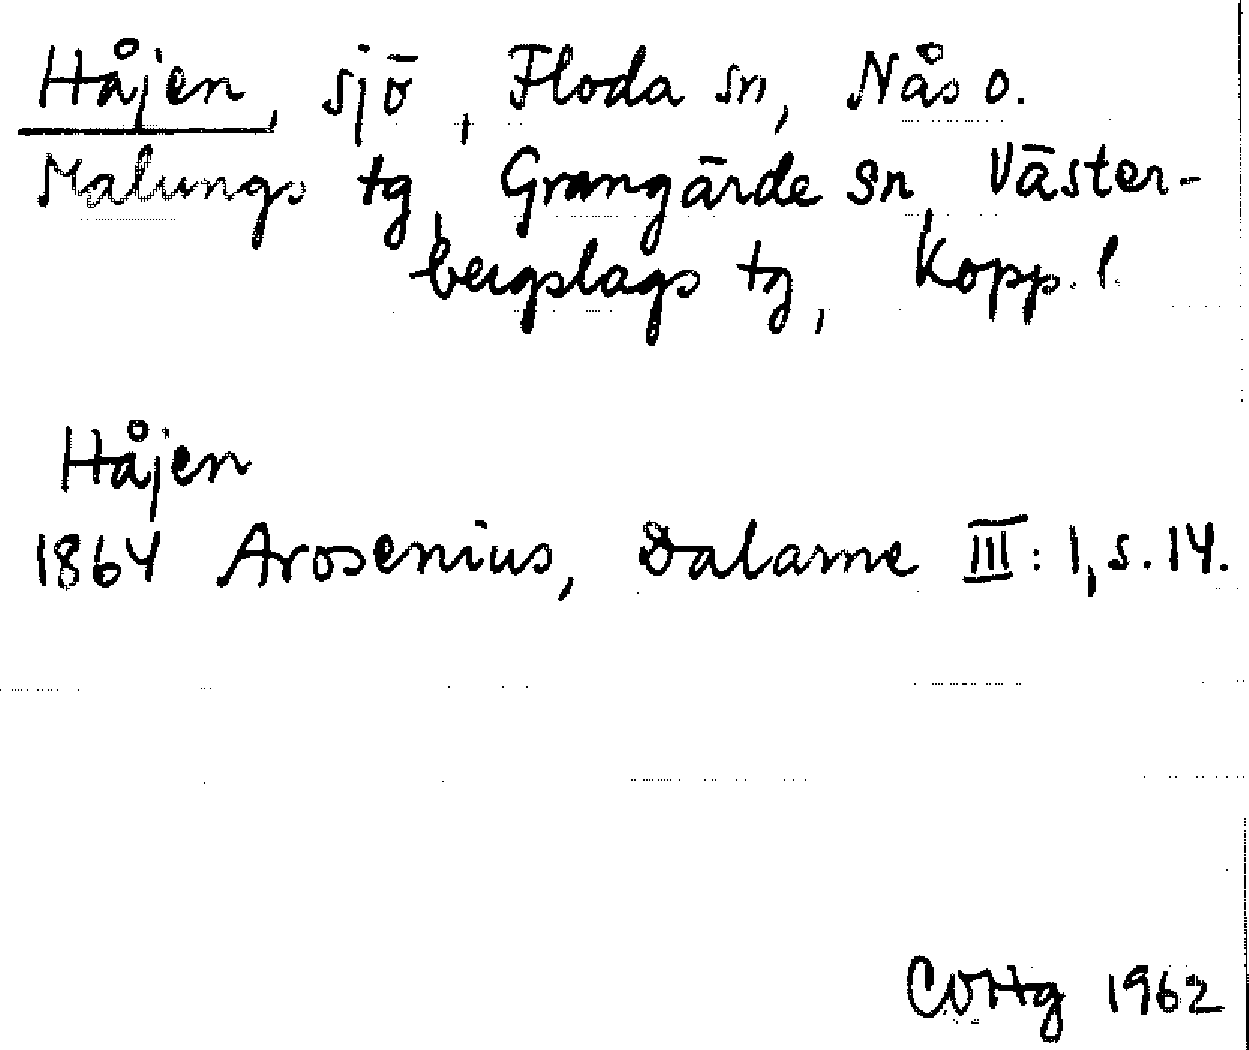 Håjen, sjö, Floda sn, Nås o.
Malungs tg, Grangärde sn, Väster-
bergslags tg, Kopp. l.
Håjen
1864 Arosenius, Dalarne III: 1, s. 14.
CVHg 1962